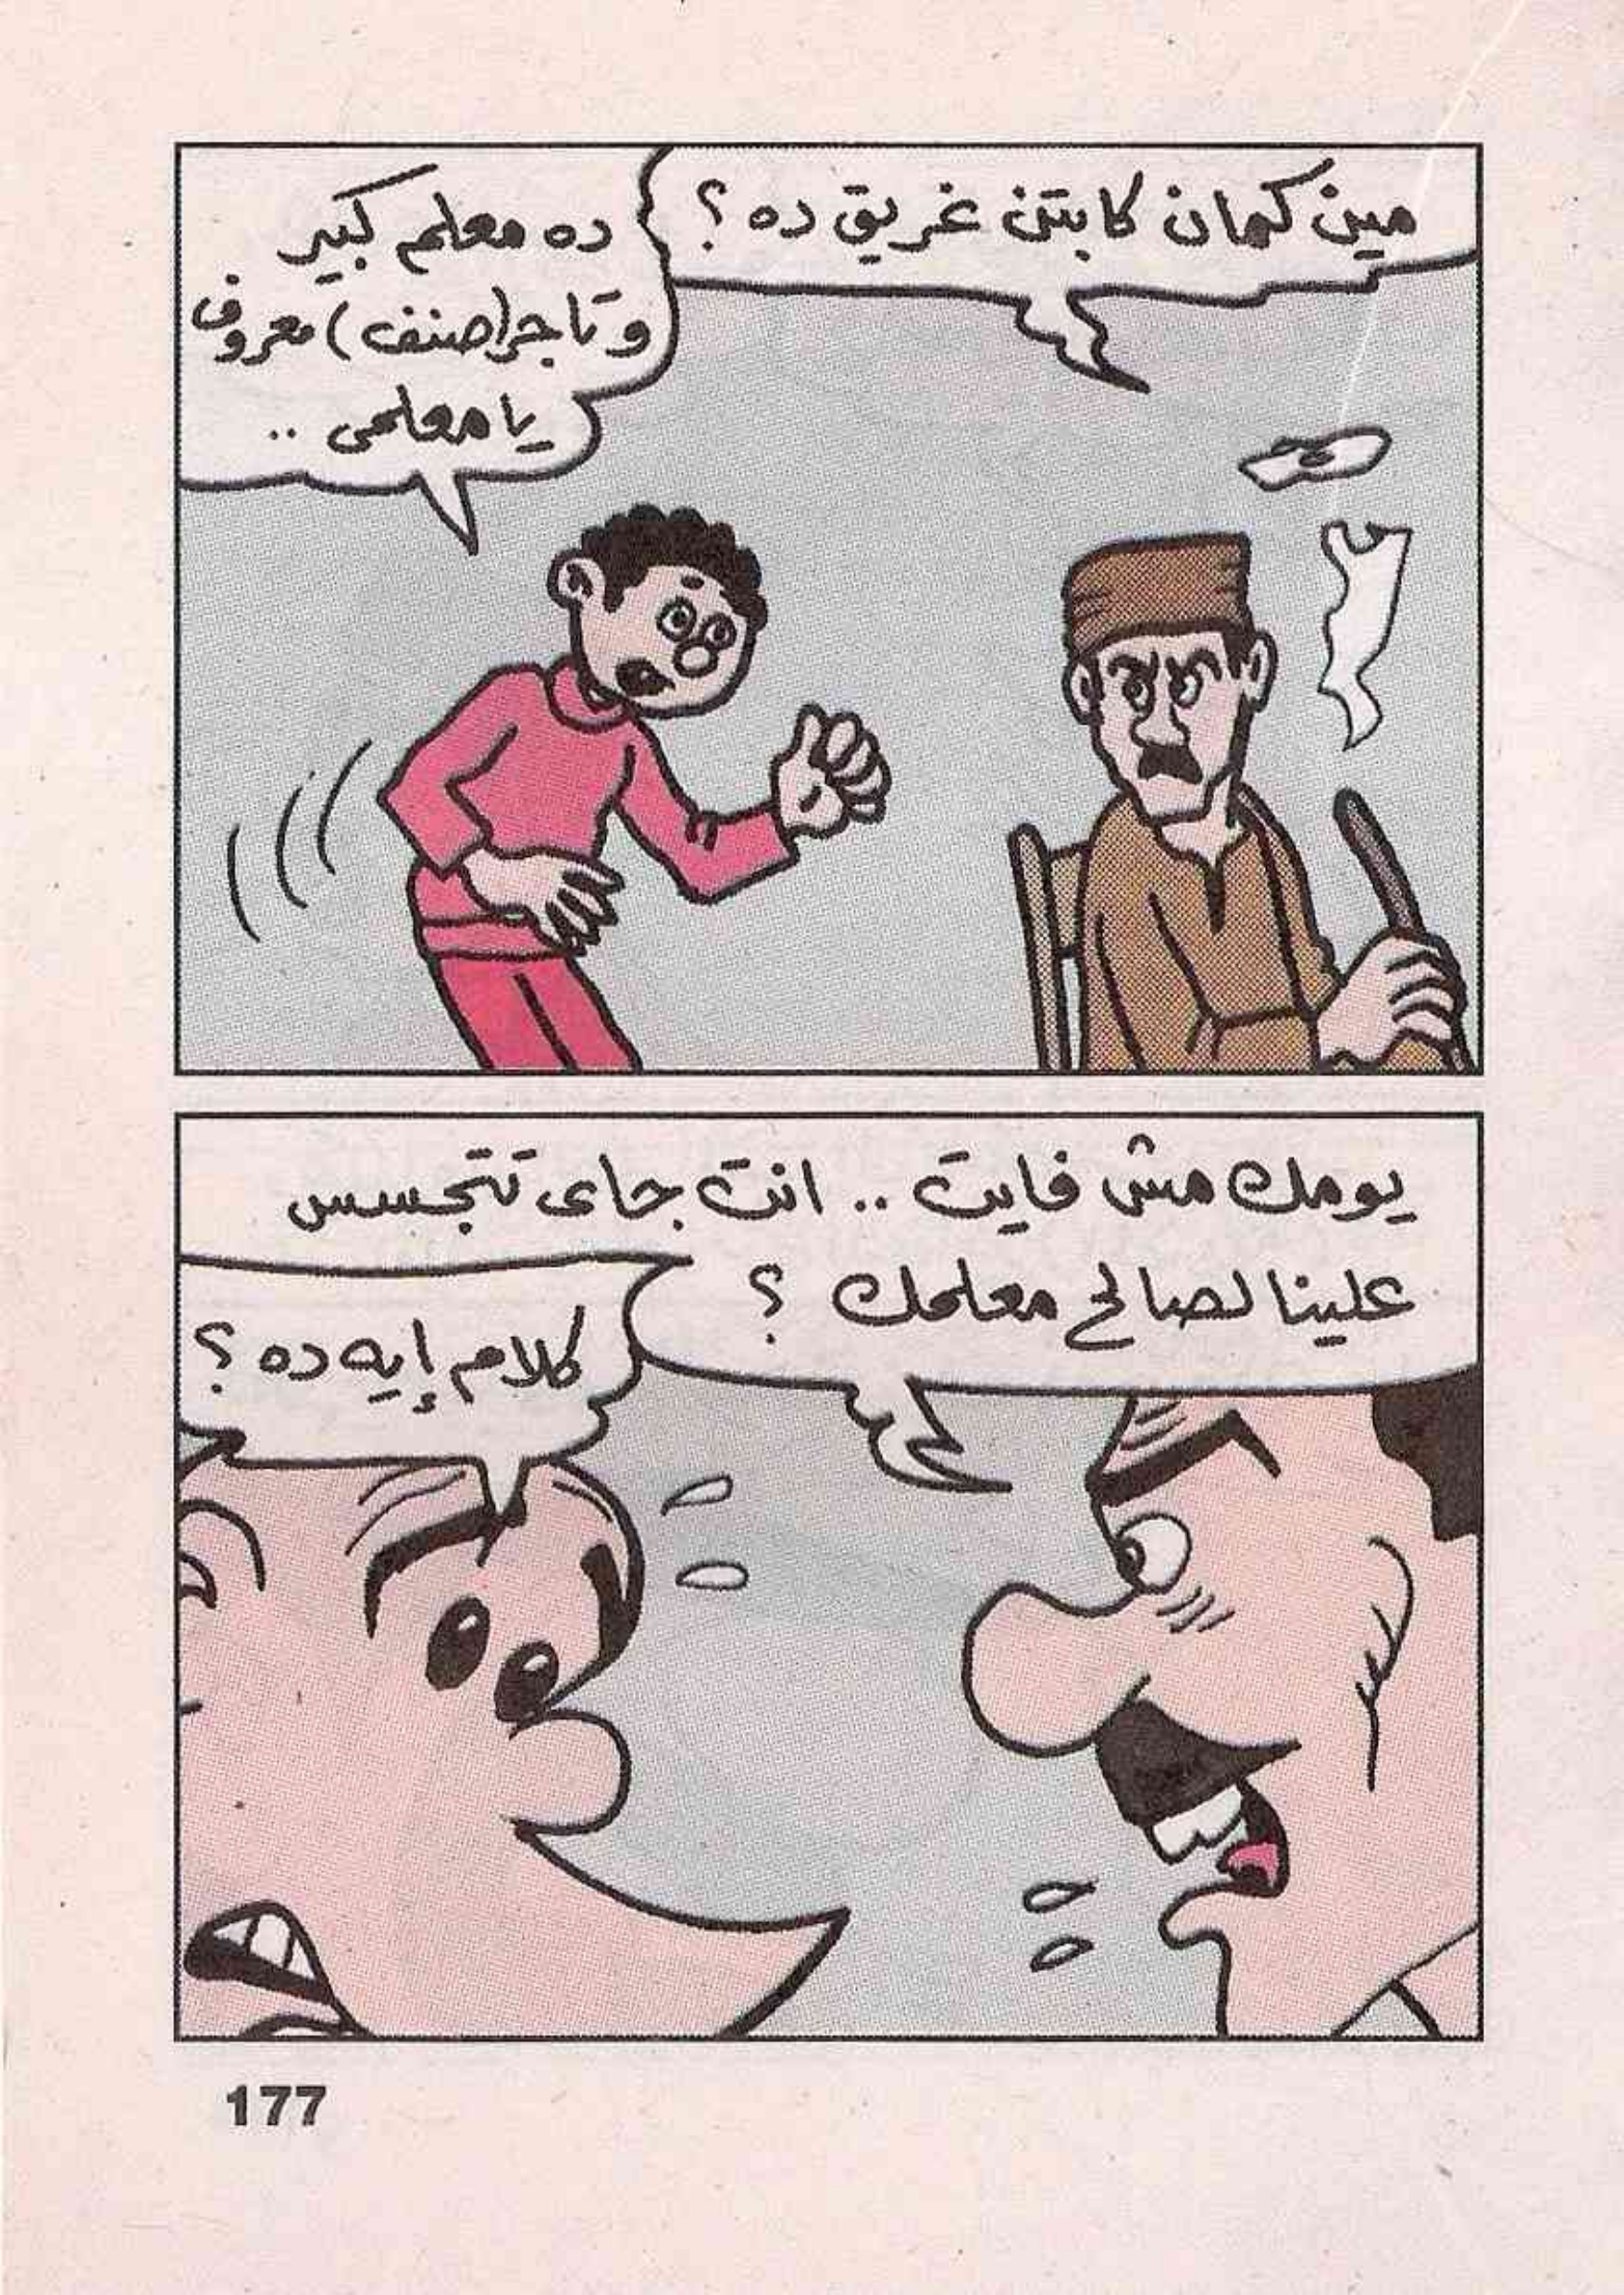 مين كمان كابتن غريق ده ؟
ده معلم كبير
و تاجر (صنف) معروف
يا معلمى ..
يومك مش فايت .. انت جاى تتجسس
علينا لصالح معلمك ؟
كلام إيه ده ؟
177